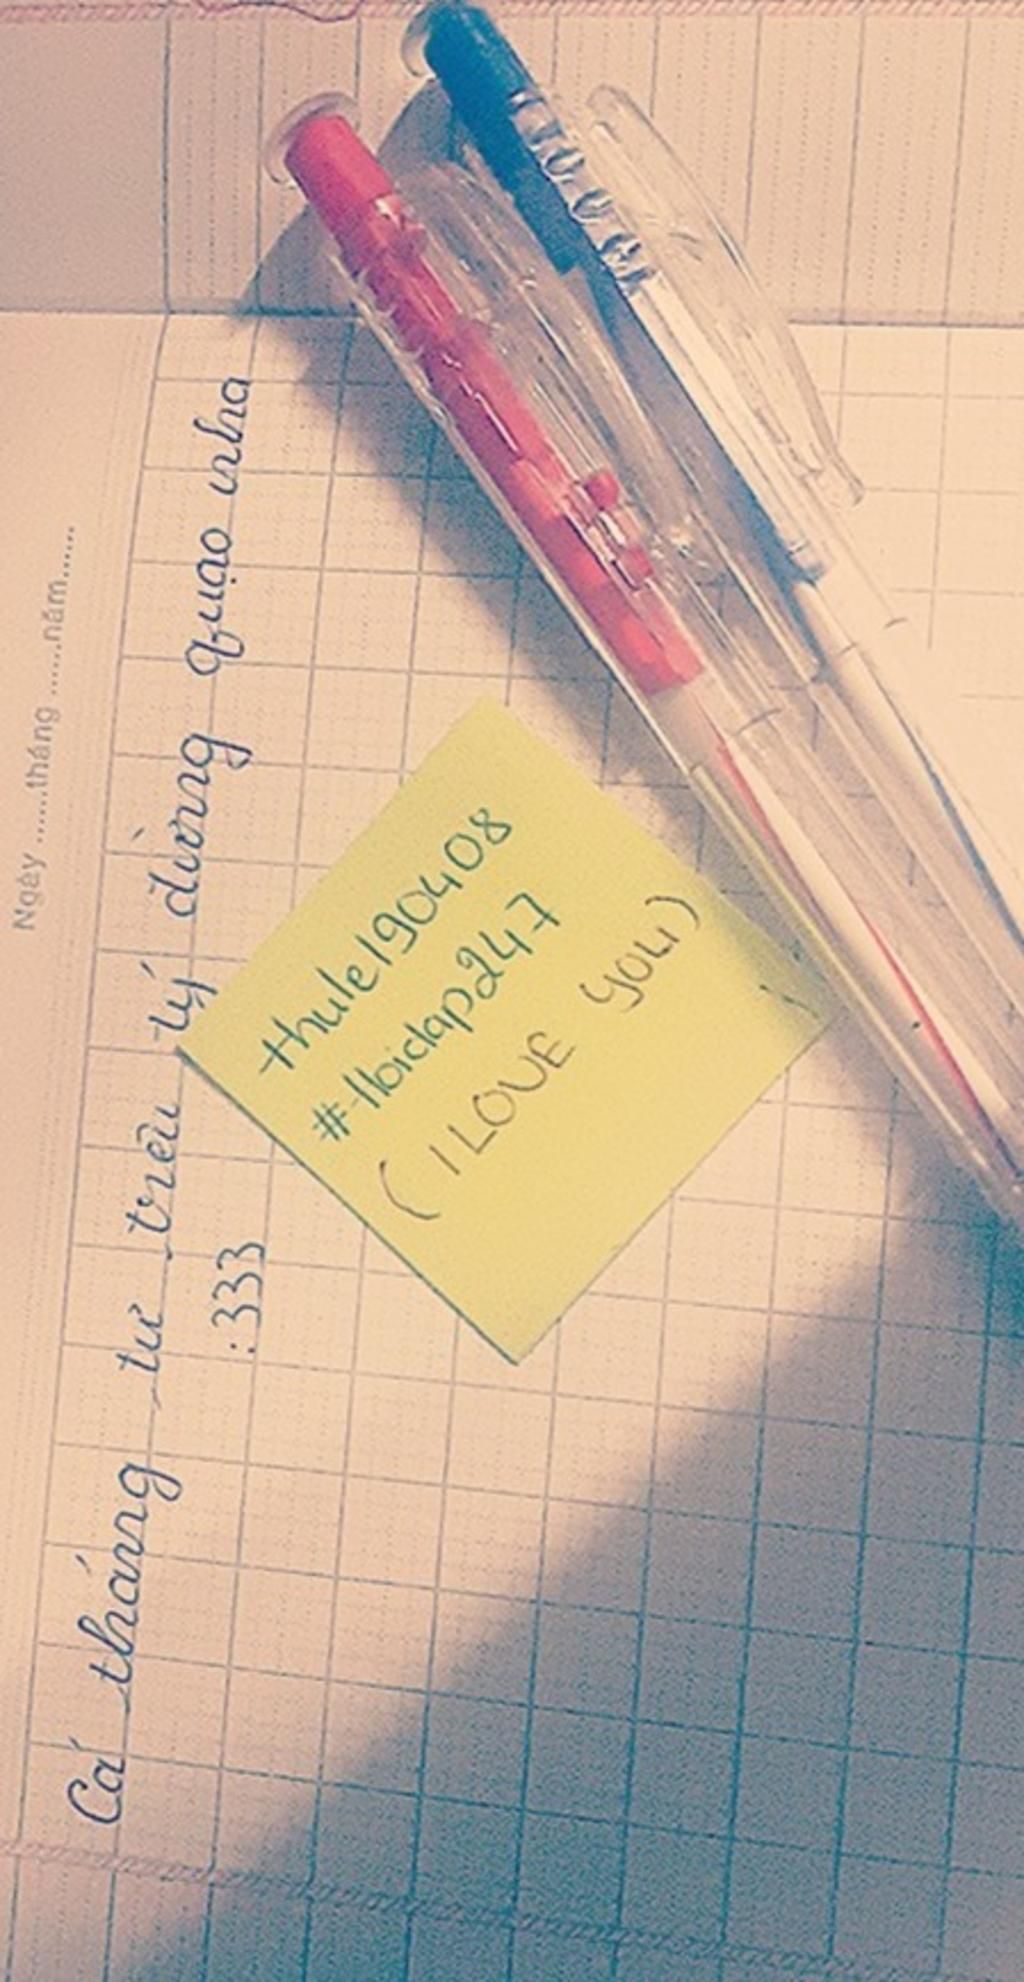 Ngày ......tháng ......năm......
Cá tháng tư trêu tý đừng quạo nha
:333
thule190408
#-11oidap247
( I LOVE YOU)